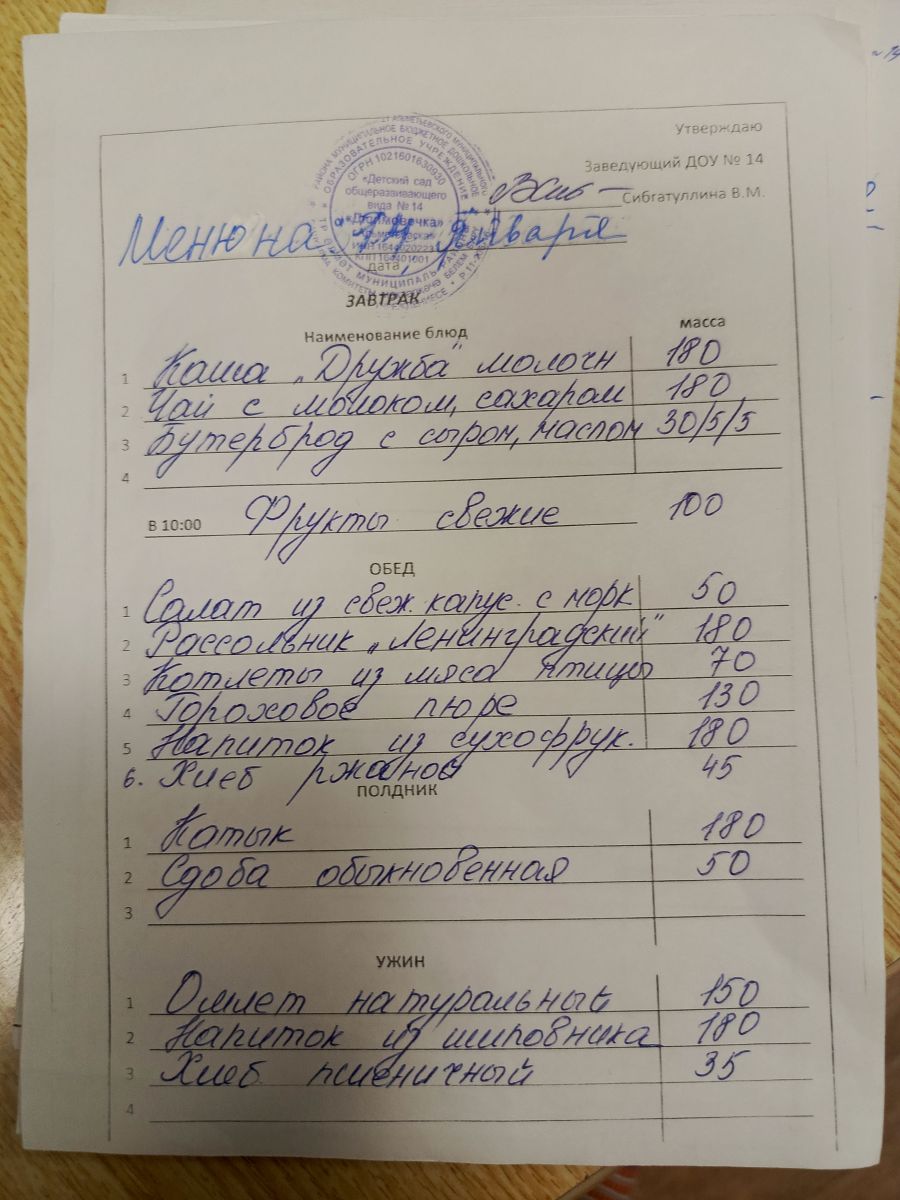 Утверждаю
Заведующий ДОУ № 14
Сибгатуллина В.М.
ОГРН 1021601630930
«Детский сад
общеразвивающего
вида № 14
«Дюймовочка»
Меню на Января
дата
ЗАВТРАК
Наименование блюд масса
1 Каша „Дружба" молочн 180
2 Чай с молоком, сахаром 180
3 Бутерброд с сыром, маслом 30/5/5
4
В 10:00 Фрукты свежие 100
ОБЕД
1 Салат из свеж. капус. с морк 50
2 Рассольник „Ленинградский" 180
3 Котлеты из мяса птицы 70
4 Гороховое пюре 130
5 Напиток из сухофрук. 180
6. Хлеб ржаной 45
ПОЛДНИК
1 Катык 180
2 Сдоба обыкновенная 50
3
УЖИН
1 Омлет натуральный 150
2 Напиток из шиповника 180
3 Хлеб пшеничный 35
4